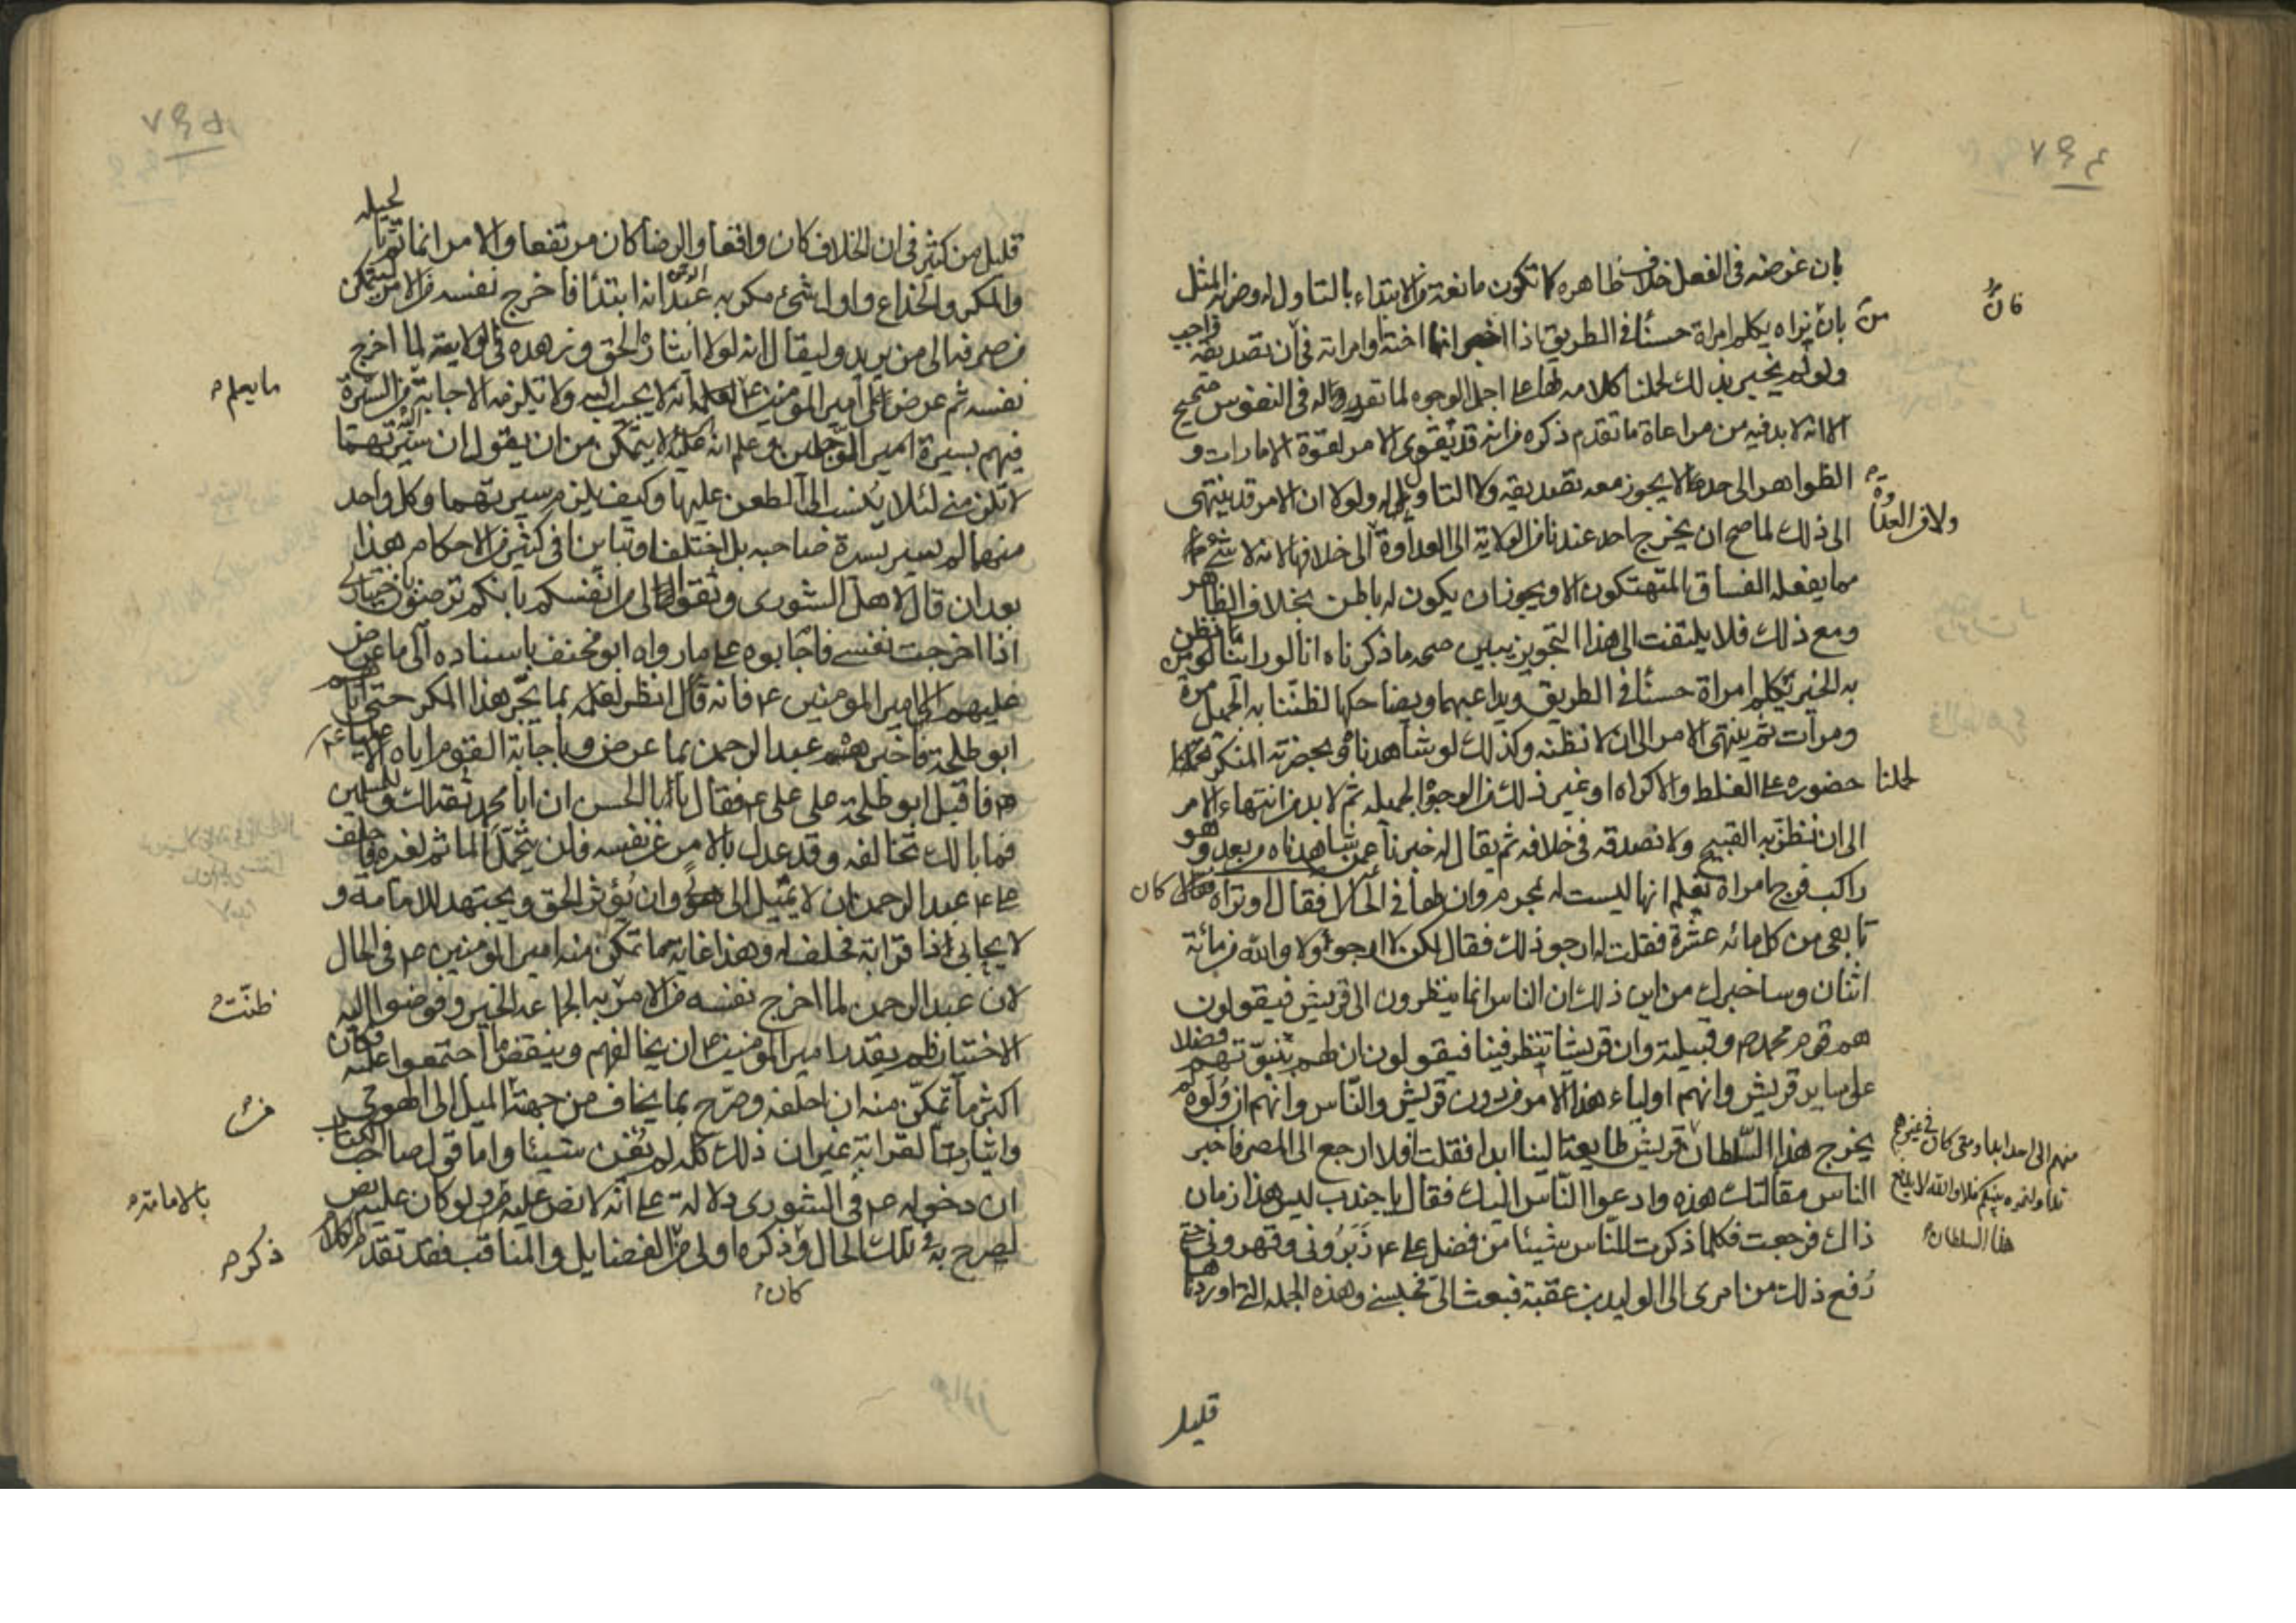 ٧٩٤
بان غرضه فى الفعل خلاف ظاهره كما تكون مانعة من الابتداء بالتاول له وضرب المثل
فان
من بان نراه يكلم امراة حسناً فى الطريق اذا اخبر انها اخته او امراته فى ان تصديقه واجب
ولو لم يخبر بذلك لحملنا كلامه لها على اجمل الوجوه لما تقدم له فى النفوس صحيح
الا انه لا بد فيه من مراعاة ما تقدم ذكره من انه قد يقوى الامر لقوة الامارات و
الظواهر الى حد لا يجوز معه تصديقه ولا التاول له ولولا ان الامر قد ينتهى
الى ذلك لما صح ان يخرج احد عندنا من الولاية الى العداوة الى خلافها لانه لا شىء
ولا من العداوة
مما يفعله الفساق المتهتكون الا ويجوز ان يكون له باطن بخلاف الظاهر
ومع ذلك فلا يلتفت الى هذا التجويز يبين صحة ما ذكرناه انا لو راينا من نظن
به الخير يكلم امراة حسناً فى الطريق ويداعبها ويضاحكها لظننا به الجميل مرة
ومرات ثم ينتهى الامر الى ان لا نظنه وكذلك لو شاهدناه وبحضرته المنكر
لحملنا حضوره على الغلط والاكراه او غير ذلك من الوجوه الجميلة ثم لا بد من انتهاء الامر
الى ان نظن به القبيح ولا نصدقه فى خلافه ثم يقال له خبرنا عمن شاهدناه من بعد وهو
راكب فرج امراة نعلم انها ليست له بمحرم وان لها فى الحال
كان
تابعى من كل مائه عشرة فقلت له ارجو ذلك فقال لكن لا ارجو ولا والله من مائة
اثنان وساخبرك من اين ذلك ان الناس انما ينظرون الى قريش فيقولون
هم قوم محمد ص وقبيلته وان قريشا تنظر فينا فيقولون ان لهم بنبوتهم فضلا
على ساير قريش وانهم اولياء هذا الامر من دون قريش والناس وانهم ان ولوه لم
يخرج هذا السلطان
منهم الى احد ابدا ومتى كان فى غيرهم
تداولتموه بينكم فلا والله لا يدفع
هذا السلطان
قريش طايعة الينا ابدا فقلت افلا ارجع الى المصر فاخبر
الناس مقالتك هذه وادعوا الناس اليك فقال يا جندب ليس هذا زمان
ذاك فرجعت فكلما ذكرت للناس شيئا من فضل على ع زبرونى وقهرونى حتى
رفع ذلك من امرى الى الوليد بن عقبة فبعث الى فحبسنى وهذه الجملة التى اوردناها
قليل
٧٩٥
قليل من كثير فى ان الخلاف كان واقعا والرضا كان مرتفعا والامر انما تم بالحيلة
والمكر والخداع واول شىء مكر به عبد الرحمن انه ابتدأ فاخرج نفسه من الامر ليتمكن
من صرفه الى من يريد وليقال انه لولا ايثاره الحق وزهده فى الولاية لما اخرج
نفسه ثم عرض على امير المؤمنين ع
ما يعلم
انه لا يجيب اليه ولا تلزمه الاجابة من السيرة
فيهم بسيرة الرجلين وعلم انه ع لا يتمكن من ان يقول ان سيرتهما
لا تلزمنى لئلا ينسب الى الطعن عليهما وكيف يلزم سيرتهما وكل واحد
منهما لم يسر بسيرة صاحبه بل اختلفا وتباينا فى كثير من الاحكام هذا
بعد ان قال لاهل الشورى وثقوا الى من انفسكم بانكم ترضون باختيارى
اذا اخرجت نفسى فاجابوه على ما رواه ابو مخنف باسناده الى ما عرض
عليهم الا امير المؤمنين ع فانه قال انظر لعلمه بما يجر هذا المكر حتى اتاهم
ابو طلحة فاخبره عبد الرحمن بما عرض وباجابة القوم اياه الا عليا ع
فاقبل ابو طلحة على على ع فقال يا ابا الحسن ان ابا محمد ثقة لك وللمسلمين
فما بالك تخالفه وقد عدل بالامر عن نفسه فلن يتحمل المأثم لغيره فاحلف
على ع عبد الرحمن ان لا يميل الى هوى وان يؤثر الحق ويجتهد للامامة و
لا يحابى ذا قرابة فحلف له وهذا غاية ما تمكن منه امير المؤمنين ع فى الحال
لان عبد الرحمن لما اخرج نفسه من الامر
ظنت
به الجماعة الخير وفوضوا اليه
الاختيار فلم يقدر امير المؤمنين ع ان يخالفهم وينقض ما اجتمعوا عليه فكان
اكثر ما تمكن منه ان احلفه وصرح بما يخاف من جهته
من
الميل الى الهوى
وايثار القرابة غير ان ذلك كله لم يغن شيئا واما قول صاحب الكتاب
ان دخوله ع فى الشورى دلالة على انه لا نص عليه
بالامامة
ولو كان عليه نص
لصرح به فى تلك الحال و
كان
ذكره اولى من
ذكر
الفضايل والمناقب فقد تقدم الكلام